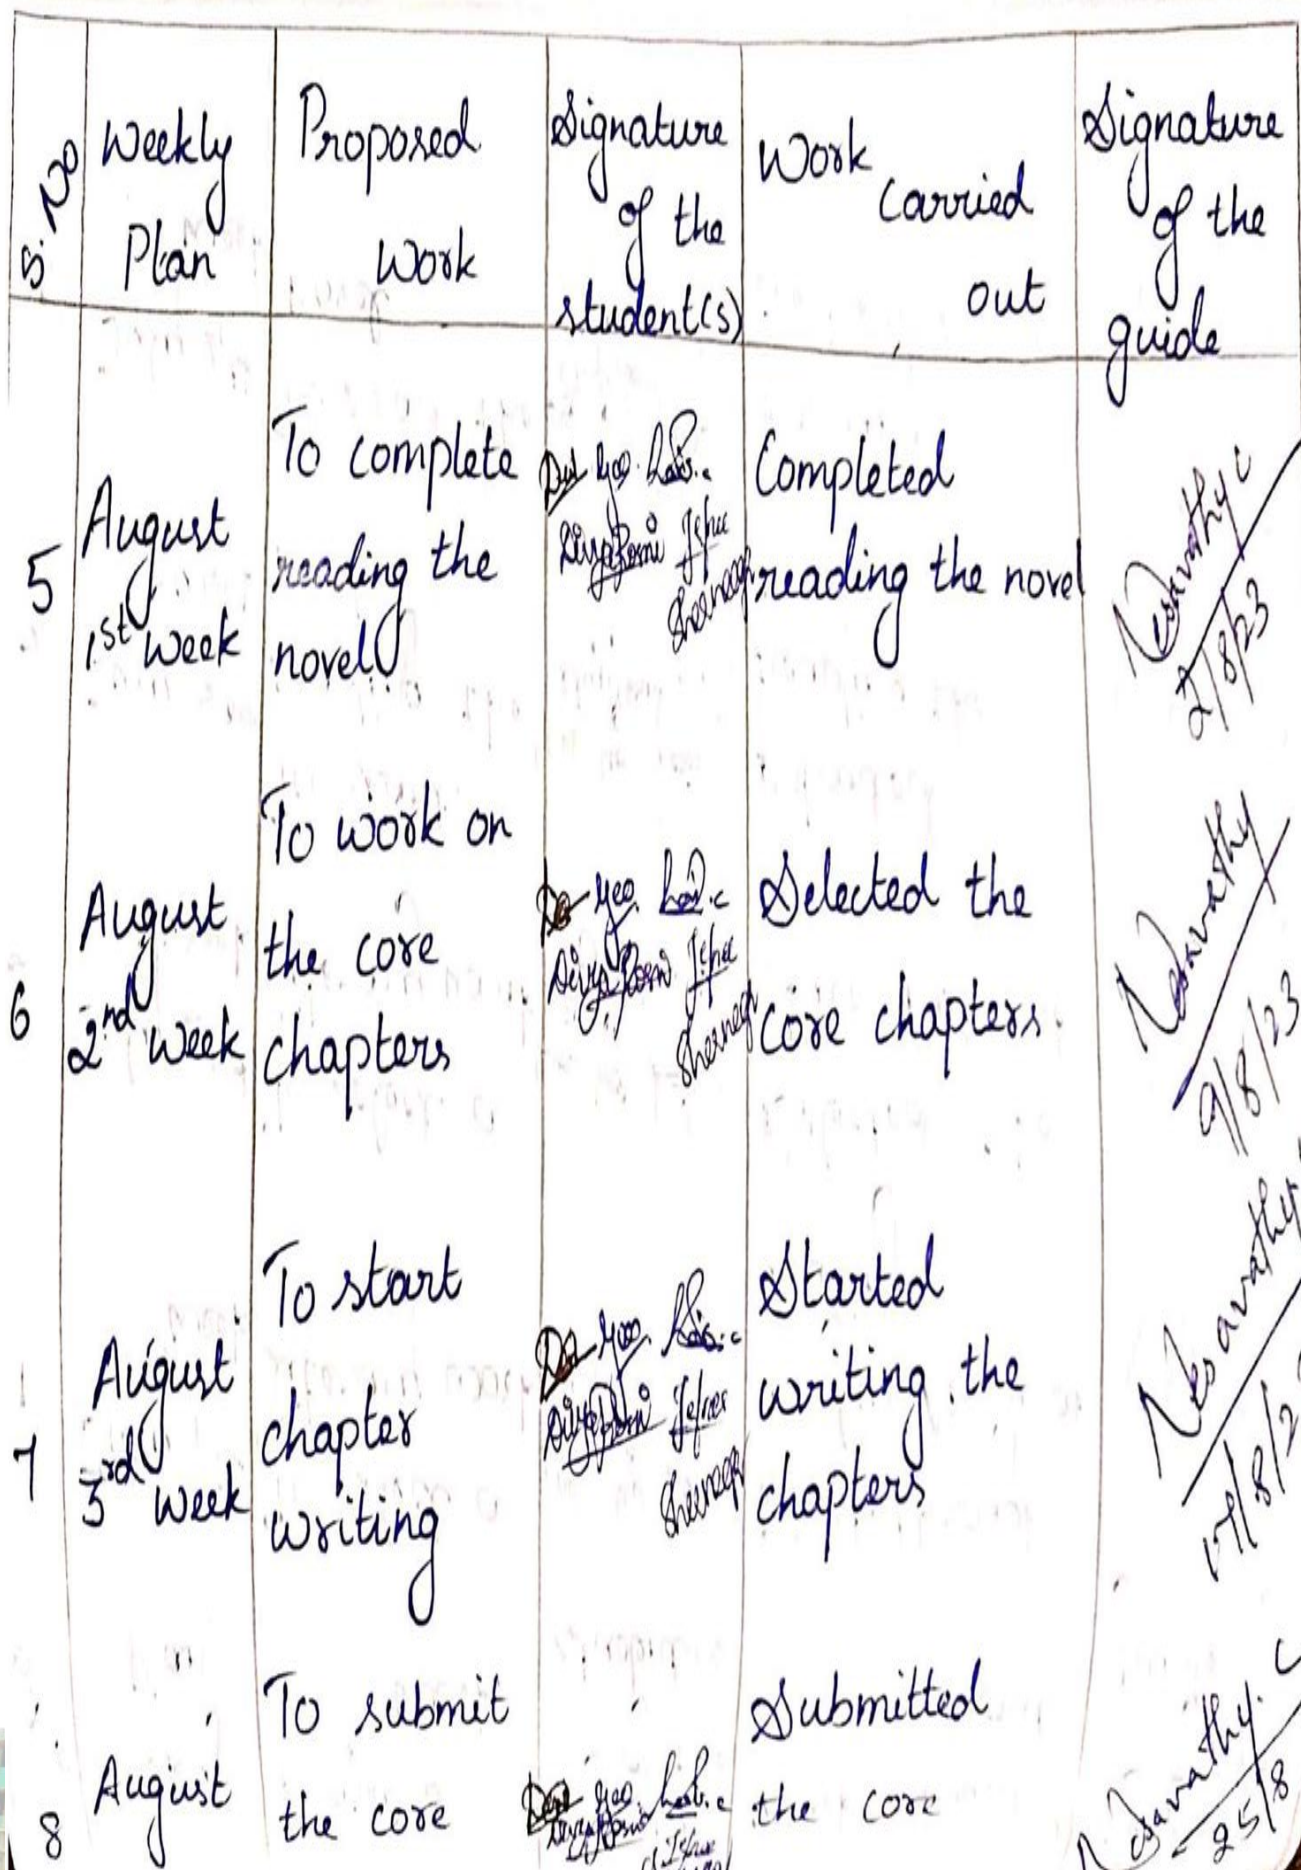 S.No
Weekly
Plan
Proposed
Work
Signature
of the
student(s)
Work
carried
out
Signature
of the
guide
5
August
1st week
To complete
reading the
novel
Completed
reading the novel
Nesavathy C
2/8/23
6
August
2nd week
To work on
the core
chapters
Selected the
core chapters.
Nesavathy
9/8/23
7
August
3rd week
To start
chapter
writing
Started
writing the
chapters
Nesavathy
17/8/2
8
August
To submit
the core
Submitted
the core
Nesavathy. C
25/8